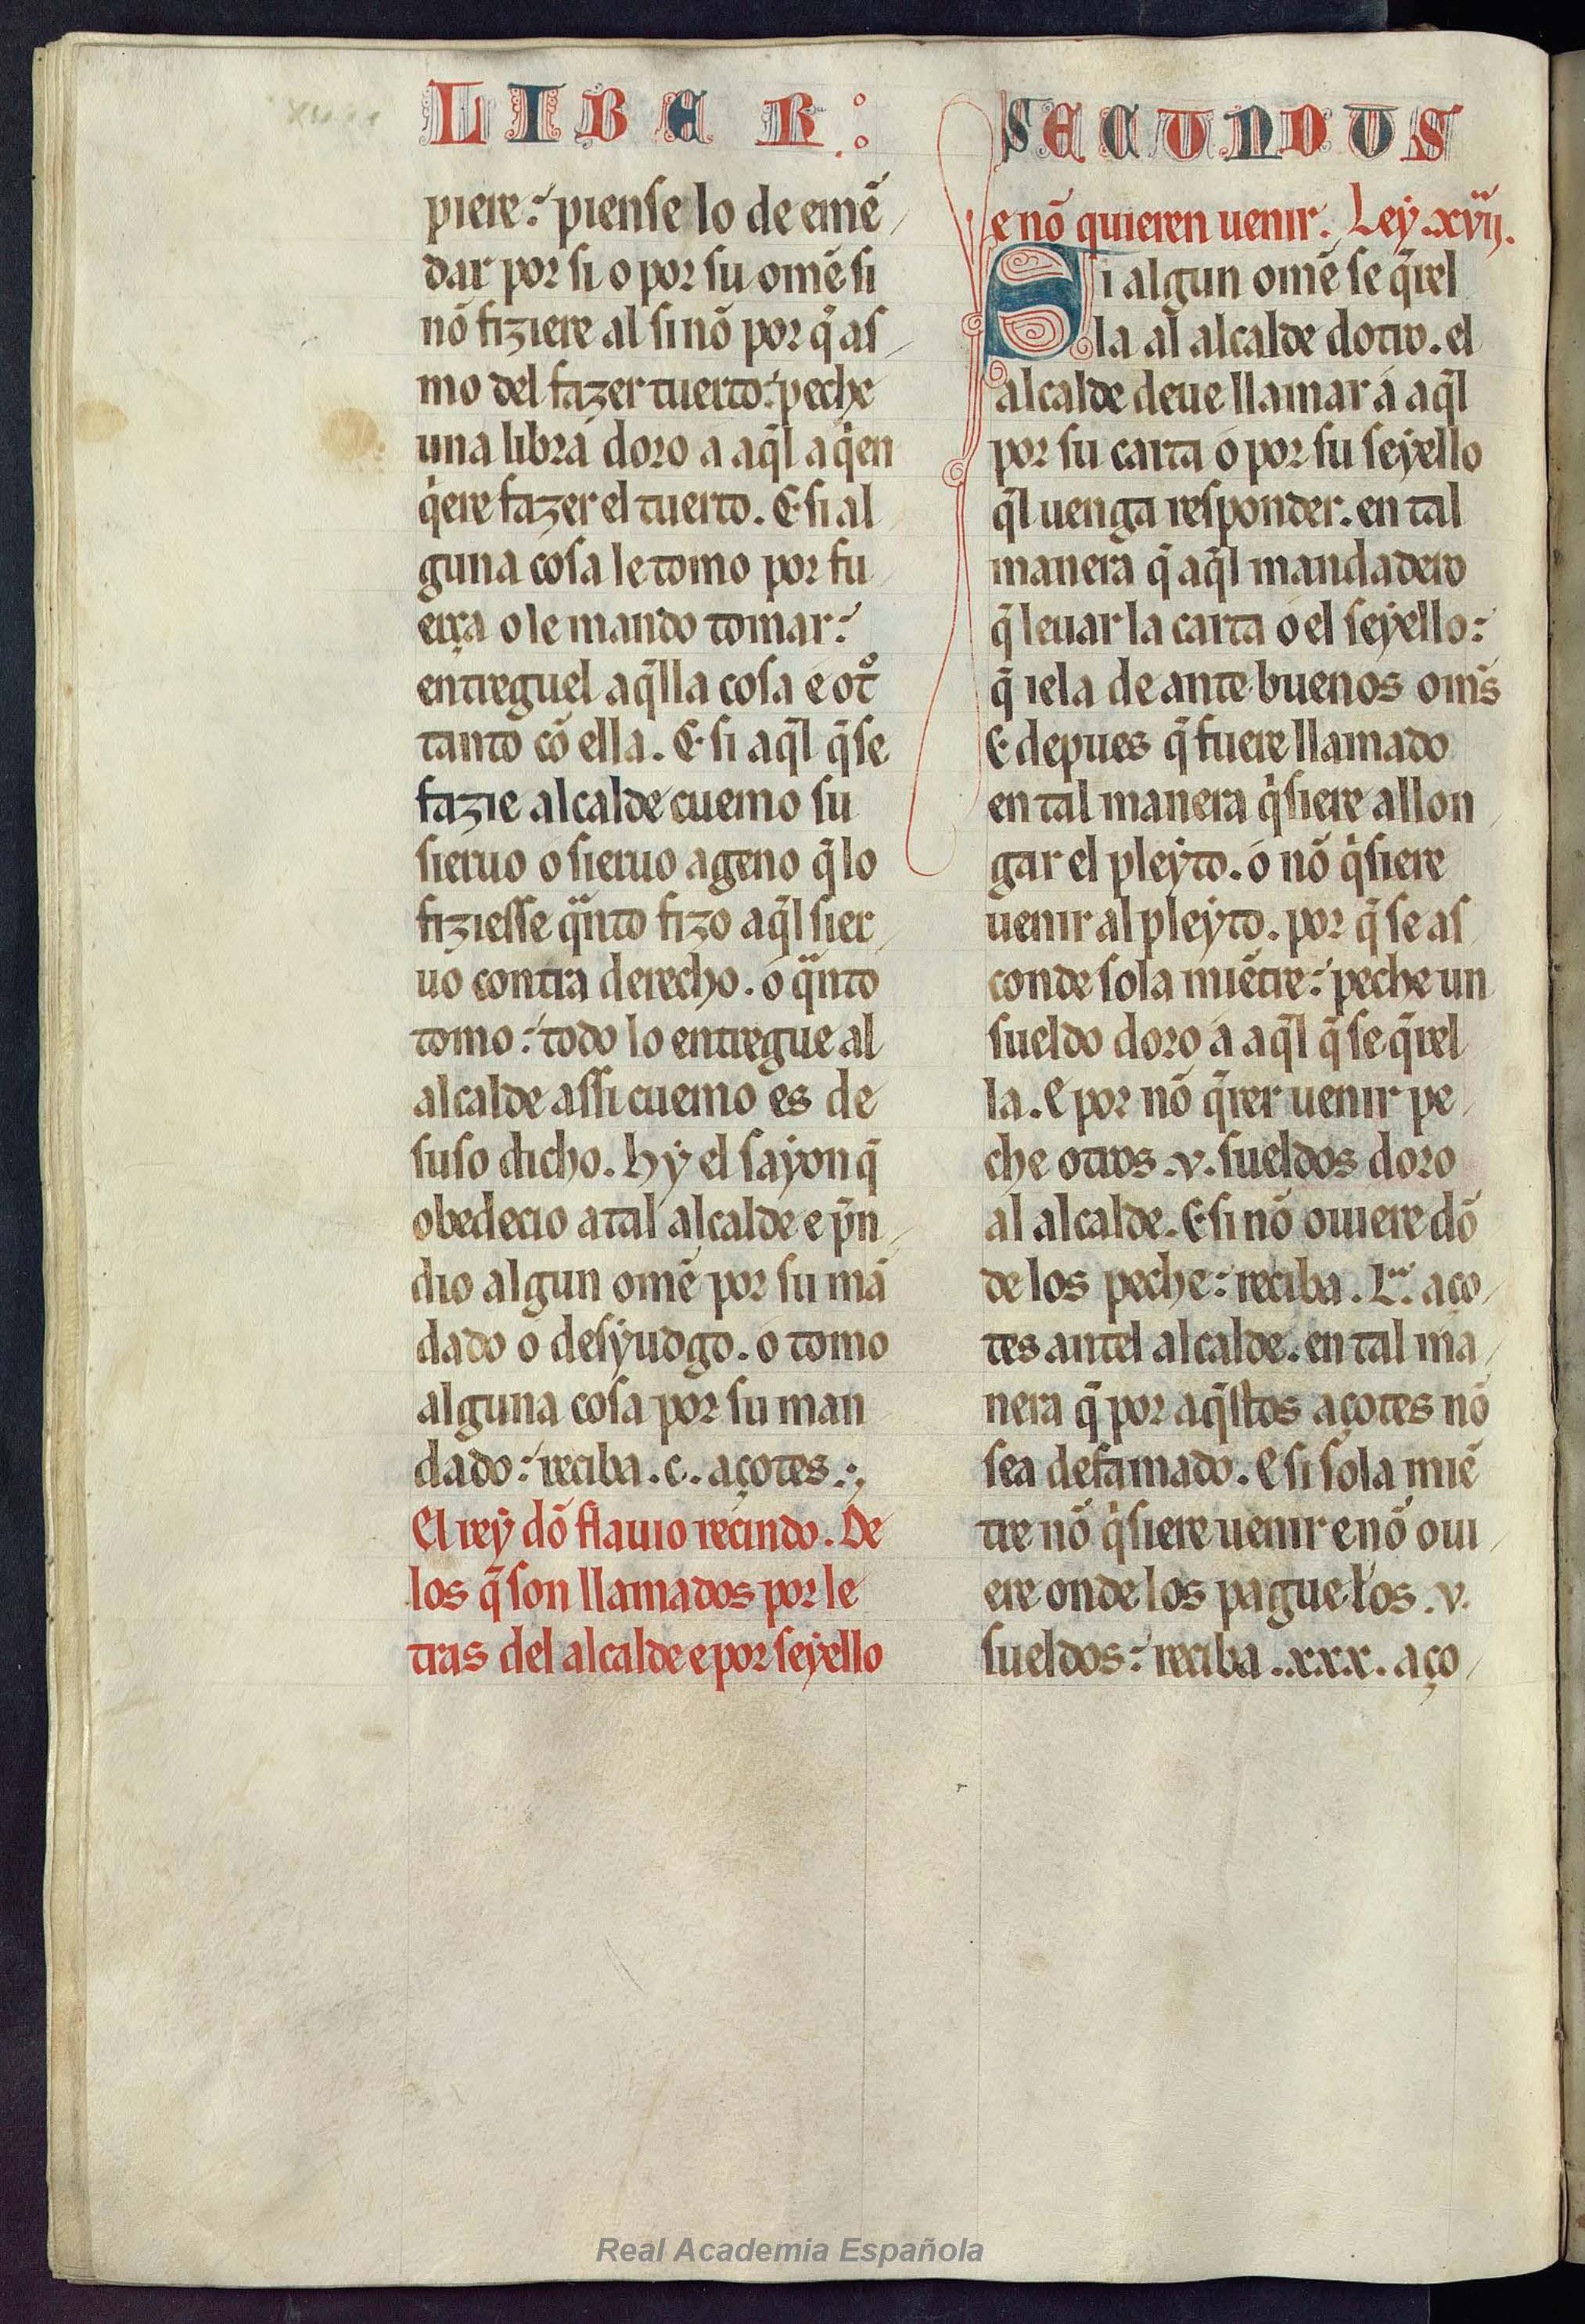 LIBER :
piere: piense lo de emẽ
dar por si o por su omẽ si
nõ fiziere al si nõ por q̃ as
mo del fazer tuerto: peche
una libra doro a aq̃l a qͥen
qͥere fazer el tuerto. E si al
guna cosa le tomo por fu
erça o le mando tomar:
entreguel aq̃lla cosa e otͦ
tanto cõ ella. E si aq̃l q̃ se
fazie alcalde cuemo su
sieruo o sieruo ageno q̃ lo
fiziesse qᷓnto fizo aq̃l sier
uo contra derecho. o qᷓnto
tomo: todo lo entregue al
alcalde assi cuemo es de
suso dicho. Hy el sayon q̃
obedecio a tal alcalde e p̃n
dio algun omẽ por su mã
dado o desyuogo. o tomo
alguna cosa por su man
dado: reciba .c. açotes.
El rey dõ flauio recindo. De
los q̃ son llamados por le
tras del alcalde e por seyello
SECUNDUS
e nõ quieren uenir. Ley .xvij.
Si algun omẽ se q̃rel
la al alcalde dotro. el
alcalde deue llamar a aq̃l
por su carta o por su seyello
q̃l uenga responder. en tal
manera q̃ aq̃l mandadero
q̃ leuar la carta o el seyello:
q̃ iela de ante buenos om̃s
E depues q̃ fuere llamado
en tal manera qͥsiere allon
gar el pleyto. o nõ qͥsiere
uenir al pleyto. por q̃ se as
conde sola miẽtre: peche un
sueldo doro a aq̃l q̃ se q̃rel
la. E por nõ q̃rer uenir pe
che otros .v. sueldos doro
al alcalde. E si nõ ouiere dõ
de los peche: reciba .L. aço
tes antel alcalde. en tal ma
nera q̃ por aq̃stos açotes nõ
sea defamado. E si sola miẽ
tre nõ qͥsiere uenir e nõ oui
ere onde los pague los .v.
sueldos: reciba .xxx. aço
Real Academia Española